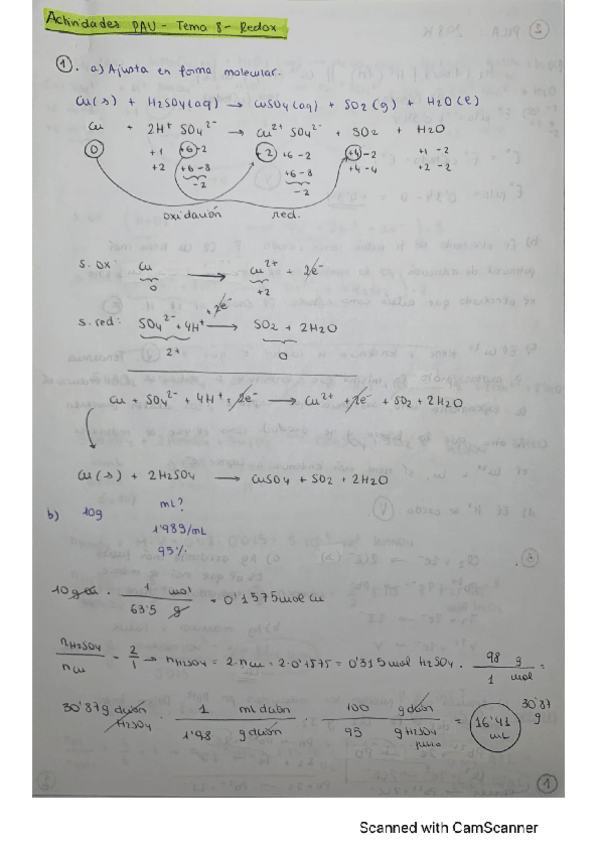 Actividades PAU - Tema 8 - Redox
1. a) Ajusta en forma molecular.
Cu(s) + H2SO4(aq) → CuSO4(aq) + SO2(g) + H2O(l)
Cu + 2H⁺ SO4²⁻ → Cu²⁺ SO4²⁻ + SO2 + H2O
0 +1 +6 -2 +2 +6 -2 +4 -2 +1 -2
+2 +6 -8 +6 -8 +4 -4 +2 -2
-2 -2
oxidación red.
s. ox: Cu → Cu²⁺ + 2e⁻
0 +2
s. red: SO4²⁻ + 4H⁺ + 2e⁻ → SO2 + 2H2O
2+ 0
Cu + SO4²⁻ + 4H⁺ + 2e⁻ → Cu²⁺ + 2e⁻ + SO2 + 2H2O
Cu(s) + 2H2SO4 → CuSO4 + SO2 + 2H2O
b) 10g mL?
1'98g/mL
95%
10g Cu · 1 mol / 63'5 g = 0'1575 mol Cu
nH2SO4 / nCu = 2/1 → nH2SO4 = 2·nCu = 2·0'1575 = 0'315 mol H2SO4 · 98 g / 1 mol =
30'87 g
30'87 g H2SO4 · 1 mL dción / 1'98 g dción · 100 g dción / 95 g H2SO4 puro = 16'41 mL
1
Scanned with CamScanner